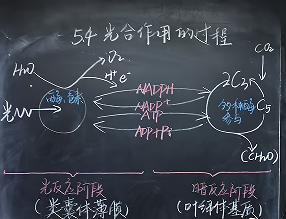 5.4 光合作用的过程
H₂O
O₂
H⁺
e⁻
光
酶、色素
NADPH
NADP⁺
ATP
ADP+Pi
CO₂
2C₃
C₅
多种酶
参与
(CH₂O)
光反应阶段
(类囊体薄膜)
暗反应阶段
(叶绿体基质)